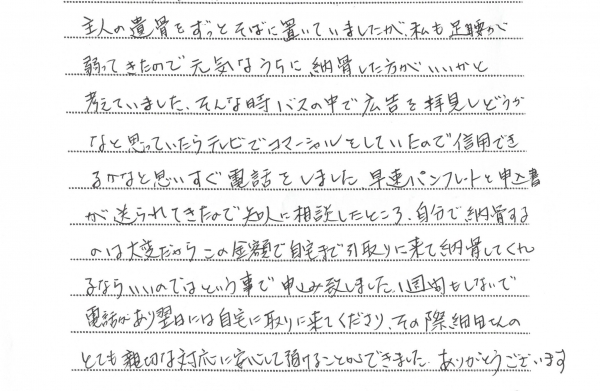 主人の遺骨をずっとそばに置いていましたが、私も足腰が
弱ってきたので元気なうちに納骨した方がいいかと
考えていました。そんな時バスの中で広告を拝見しどうか
なと思っていたらテレビでコマーシャルをしていたので信用でき
るかなと思いすぐ電話をしました。早速パンフレットと申込書
が送られてきたので知人に相談したところ、自分で納骨する
のは大変だからこの金額で自宅まで引取りに来て納骨してくれ
るならいいのではという事で申込み致しました。1週間もしないで
電話があり翌日には自宅に取りに来てくださり、その際細田さんの
とても親切な対応に安心して頂けることができました。ありがとうございます